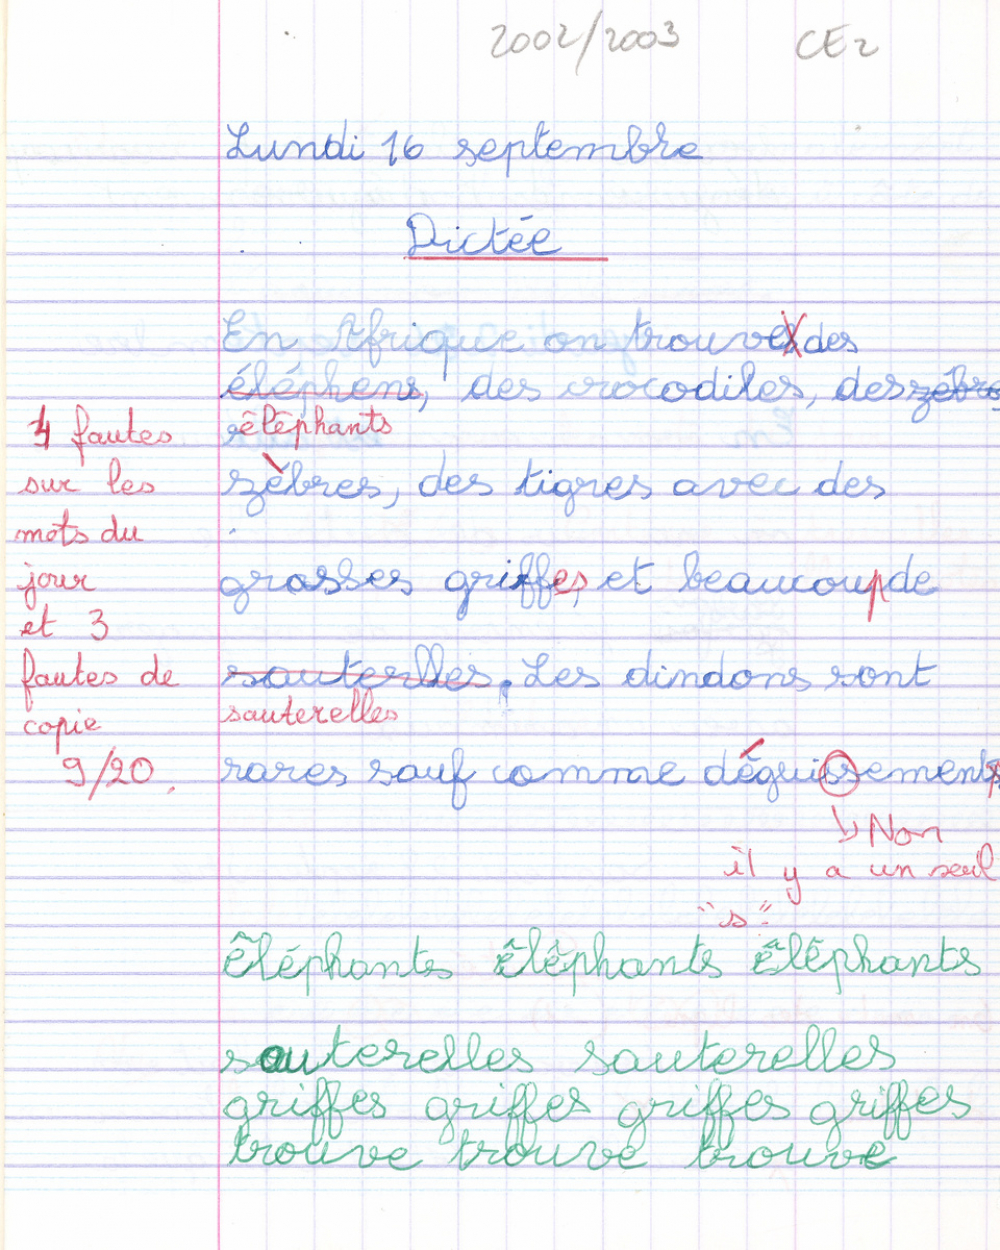 2002/2003 CE2
Lundi 16 septembre
Dictée
En Afrique on trouves des
éléphens, des crocodiles, des zébre
éléphants
4 fautes
sur les
mots du
jour
et 3
fautes de
copie
9/20
zèbres, des tigres avec des
grosses griffes, et beaucoup de
sauterlles. Les dindons sont
sauterelles
rares sauf comme déguissements
Non
il y a un seul
"s"
éléphants éléphants éléphants
sauterelles sauterelles
griffes griffes griffes griffes
trouve trouve trouve